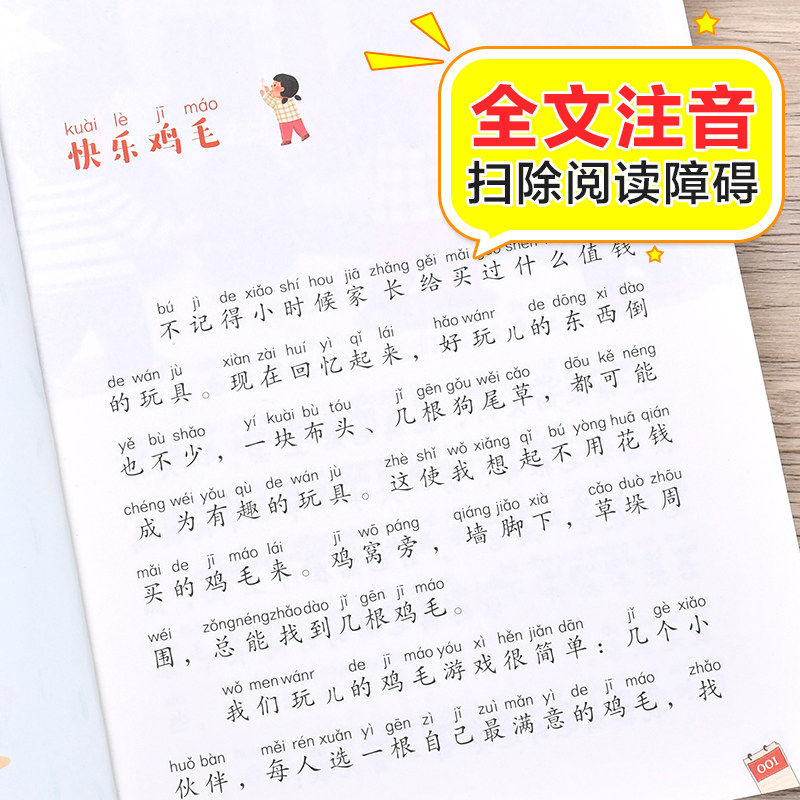 全文注音
扫除阅读障碍
kuài lè jī máo
快乐鸡毛
bú jì de xiǎo shí hou jiā zhǎng gěi mǎi
不记得小时候家长给买过什么值钱
de wán jù xiàn zài huí yì qǐ lái hǎo wánr de dōng xi dào
的玩具。现在回忆起来，好玩儿的东西倒
yě bù shǎo yí kuài bù tóu jǐ gēn gǒu wěi cǎo dōu kě néng
也不少，一块布头、几根狗尾草，都可能
chéng wéi yǒu qù de wán jù zhè shǐ wǒ xiǎng qǐ bú yòng huā qián
成为有趣的玩具。这使我想起不用花钱
mǎi de jī máo lái jī wō páng qiáng jiǎo xià cǎo duò zhōu
买的鸡毛来。鸡窝旁，墙脚下，草垛周
wéi zǒng néng zhǎo dào jǐ gēn jī máo
围，总能找到几根鸡毛。
wǒ men wánr de jī máo yóu xì hěn jiǎn dān jǐ gè xiǎo
我们玩儿的鸡毛游戏很简单：几个小
huǒ bàn měi rén xuǎn yì gēn zì jǐ zuì mǎn yì de jī máo zhǎo
伙伴，每人选一根自己最满意的鸡毛，找
001